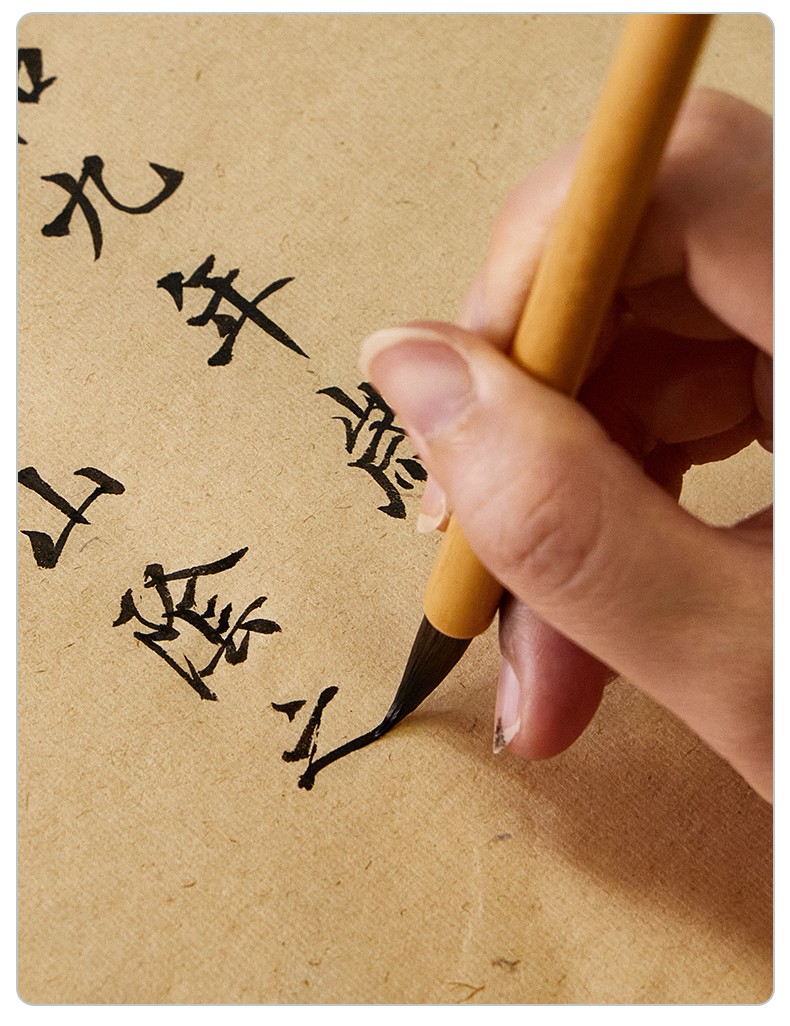 九年歲
山陰之